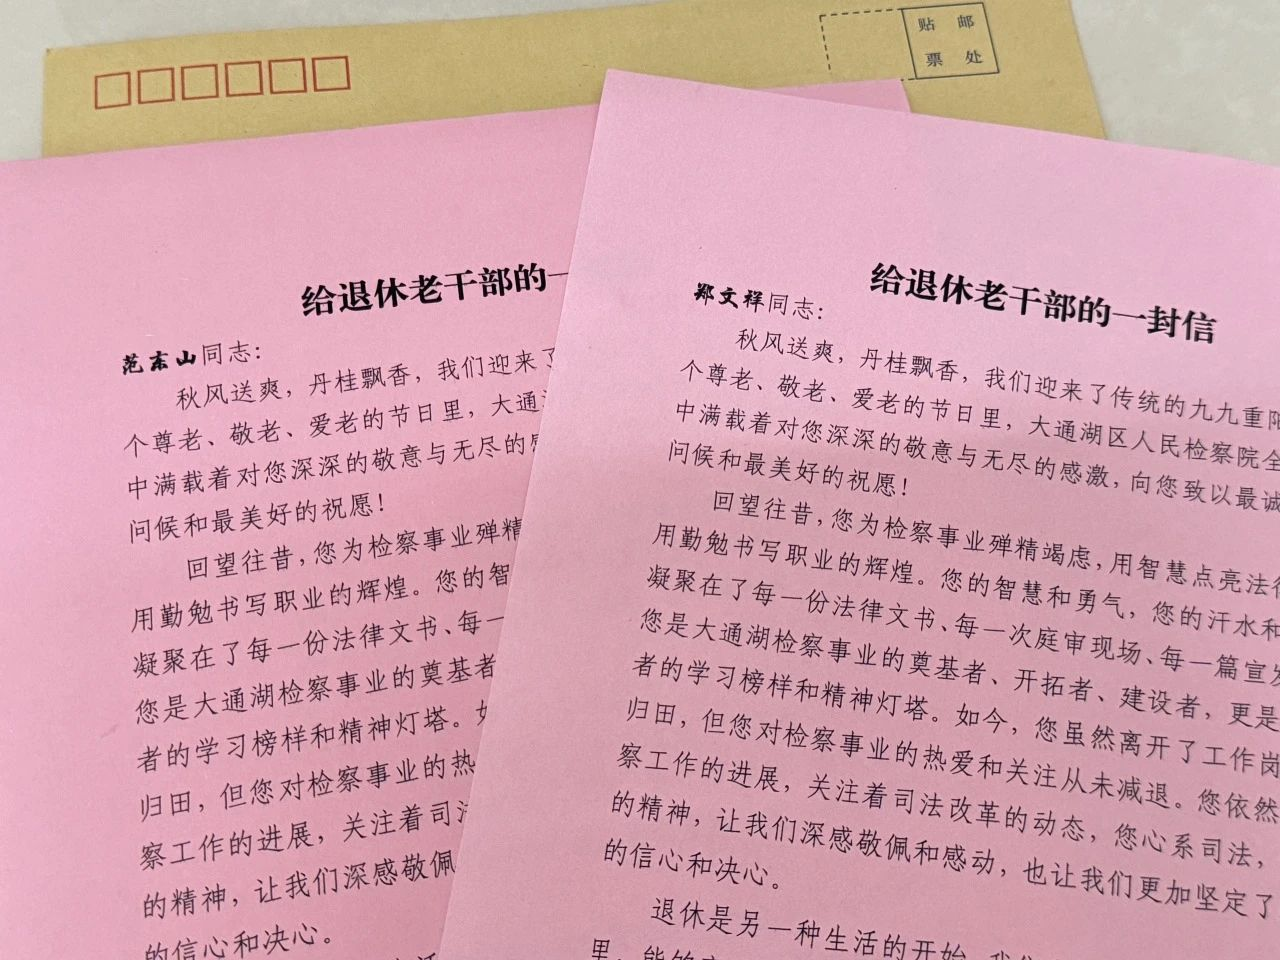 贴 邮
票 处
给退休老干部的一
范东山同志：
秋风送爽，丹桂飘香，我们迎来了
个尊老、敬老、爱老的节日里，大通
中满载着对您深深的敬意与无尽的感
问候和最美好的祝愿！
回望往昔，您为检察事业殚精
用勤勉书写职业的辉煌。您的智
凝聚在了每一份法律文书、每一
您是大通湖检察事业的奠基者
者的学习榜样和精神灯塔。如
归田，但您对检察事业的热
察工作的进展，关注着司法
的精神，让我们深感敬佩
的信心和决心。
给退休老干部的一封信
郑文祥同志：
秋风送爽，丹桂飘香，我们迎来了传统的九九重阳
个尊老、敬老、爱老的节日里，大通湖区人民检察院全
中满载着对您深深的敬意与无尽的感激，向您致以最诚
问候和最美好的祝愿！
回望往昔，您为检察事业殚精竭虑，用智慧点亮法律
用勤勉书写职业的辉煌。您的智慧和勇气，您的汗水和
凝聚在了每一份法律文书、每一次庭审现场、每一篇宣发
您是大通湖检察事业的奠基者、开拓者、建设者，更是
者的学习榜样和精神灯塔。如今，您虽然离开了工作岗
归田，但您对检察事业的热爱和关注从未减退。您依然
察工作的进展，关注着司法改革的动态，您心系司法，
的精神，让我们深感敬佩和感动，也让我们更加坚定了
的信心和决心。
退休是另一种生活的开始
里，能够